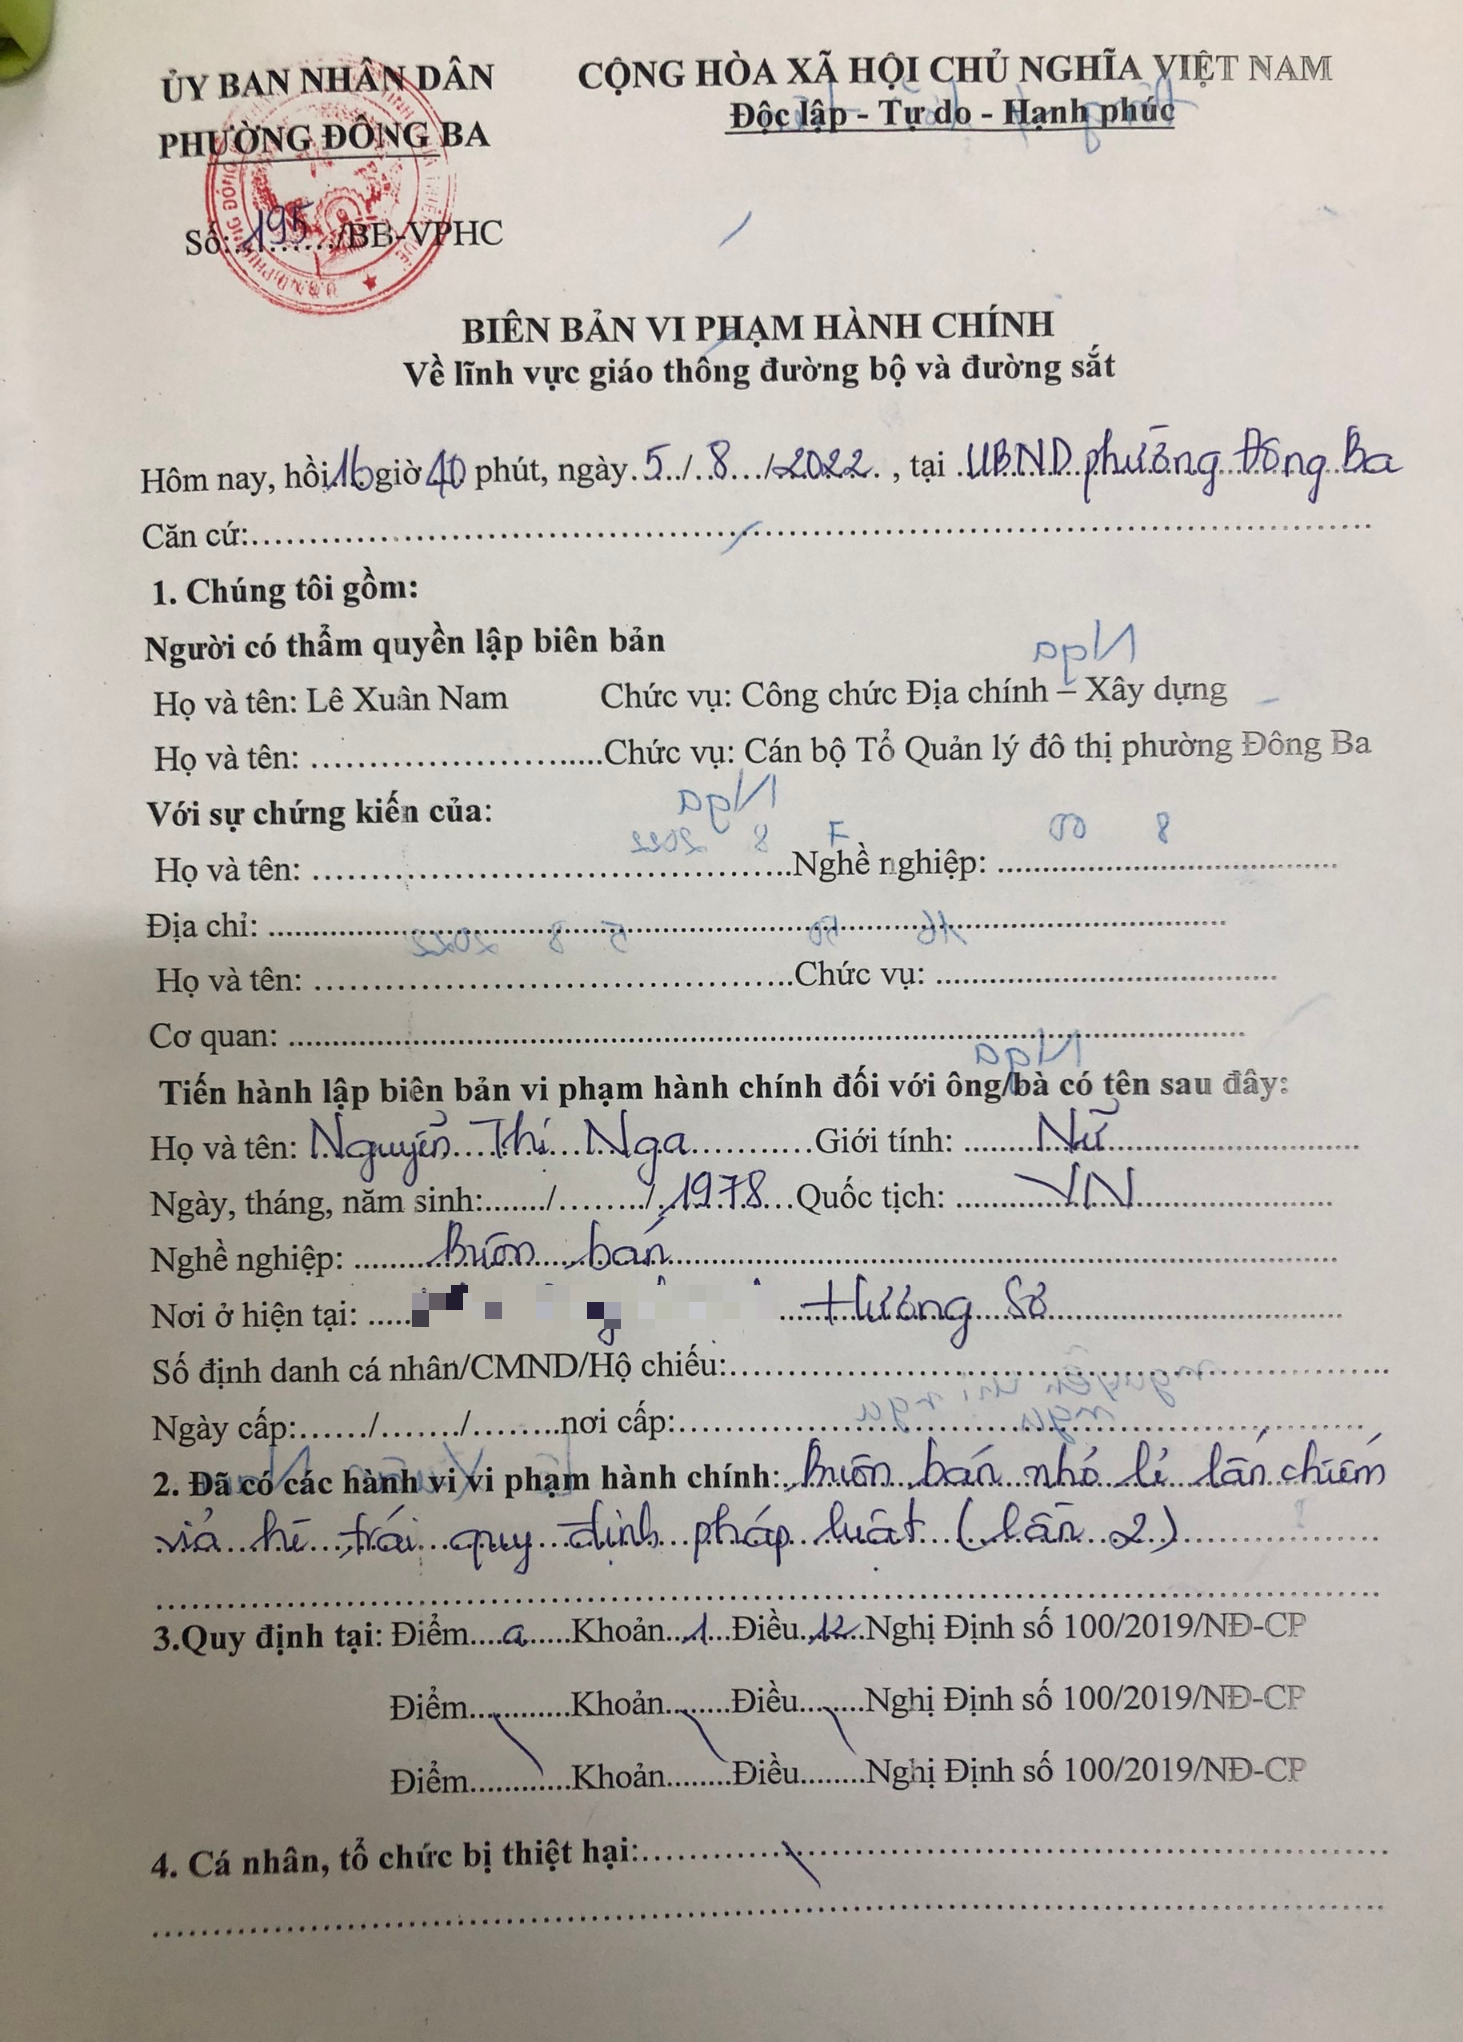 ỦY BAN NHÂN DÂN
PHƯỜNG ĐÔNG BA
CỘNG HÒA XÃ HỘI CHỦ NGHĨA VIỆT NAM
Độc lập - Tự do - Hạnh phúc
Số:.195......./BB-VPHC
BIÊN BẢN VI PHẠM HÀNH CHÍNH
Về lĩnh vực giáo thông đường bộ và đường sắt
Hôm nay, hồi 16 giờ 40 phút, ngày 5../..8.../2022., tại .UBND phường Đông Ba
Căn cứ:
1. Chúng tôi gồm:
Người có thẩm quyền lập biên bản
Họ và tên: Lê Xuân Nam Chức vụ: Công chức Địa chính – Xây dựng
Họ và tên: ........................Chức vụ: Cán bộ Tổ Quản lý đô thị phường Đông Ba
Với sự chứng kiến của:
Họ và tên: ........................Nghề nghiệp: ........................
Địa chỉ: ........................
Họ và tên: ........................Chức vụ: ........................
Cơ quan: ........................
Tiến hành lập biên bản vi phạm hành chính đối với ông/bà có tên sau đây:
Họ và tên: Nguyễn Thị Nga............Giới tính: ........Nữ........
Ngày, tháng, năm sinh:......./........./.1978...Quốc tịch: ........VN........
Nghề nghiệp: ........Buôn bán........
Nơi ở hiện tại: ..... Hương Sơ
Số định danh cá nhân/CMND/Hộ chiếu:........................
Ngày cấp:....../......./.........nơi cấp:........................
2. Đã có các hành vi vi phạm hành chính: Buôn bán nhỏ lẻ lấn chiếm
vỉa hè trái quy định pháp luật (lần 2)
3.Quy định tại: Điểm....a......Khoản..1...Điều..12..Nghị Định số 100/2019/NĐ-CP
Điểm............Khoản........Điều........Nghị Định số 100/2019/NĐ-CP
Điểm............Khoản........Điều........Nghị Định số 100/2019/NĐ-CP
4. Cá nhân, tổ chức bị thiệt hại:........................